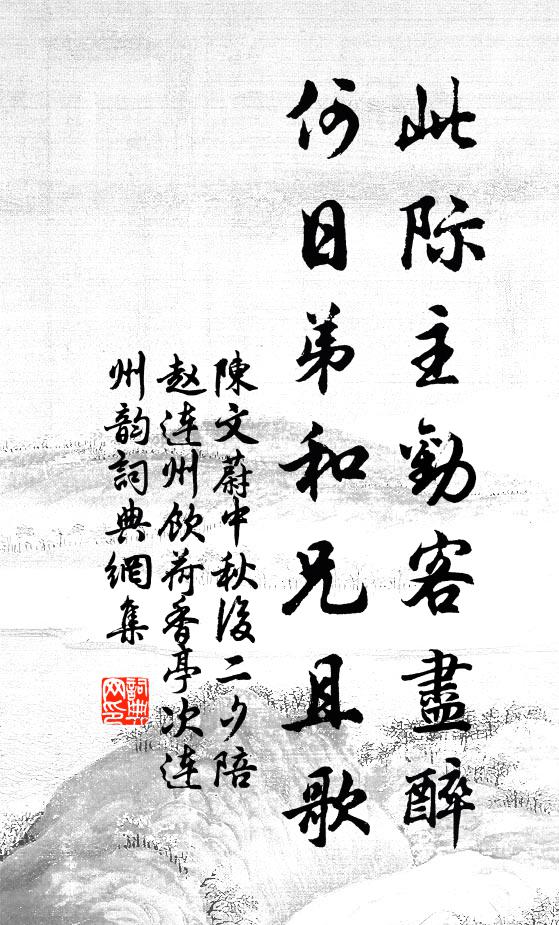 此际主勸客盡醉
何日弟和兄且歌
陳文蔚中秋後二夕陪
赵连州飲荷香亭次连
州韵詞典網集
詞典网印